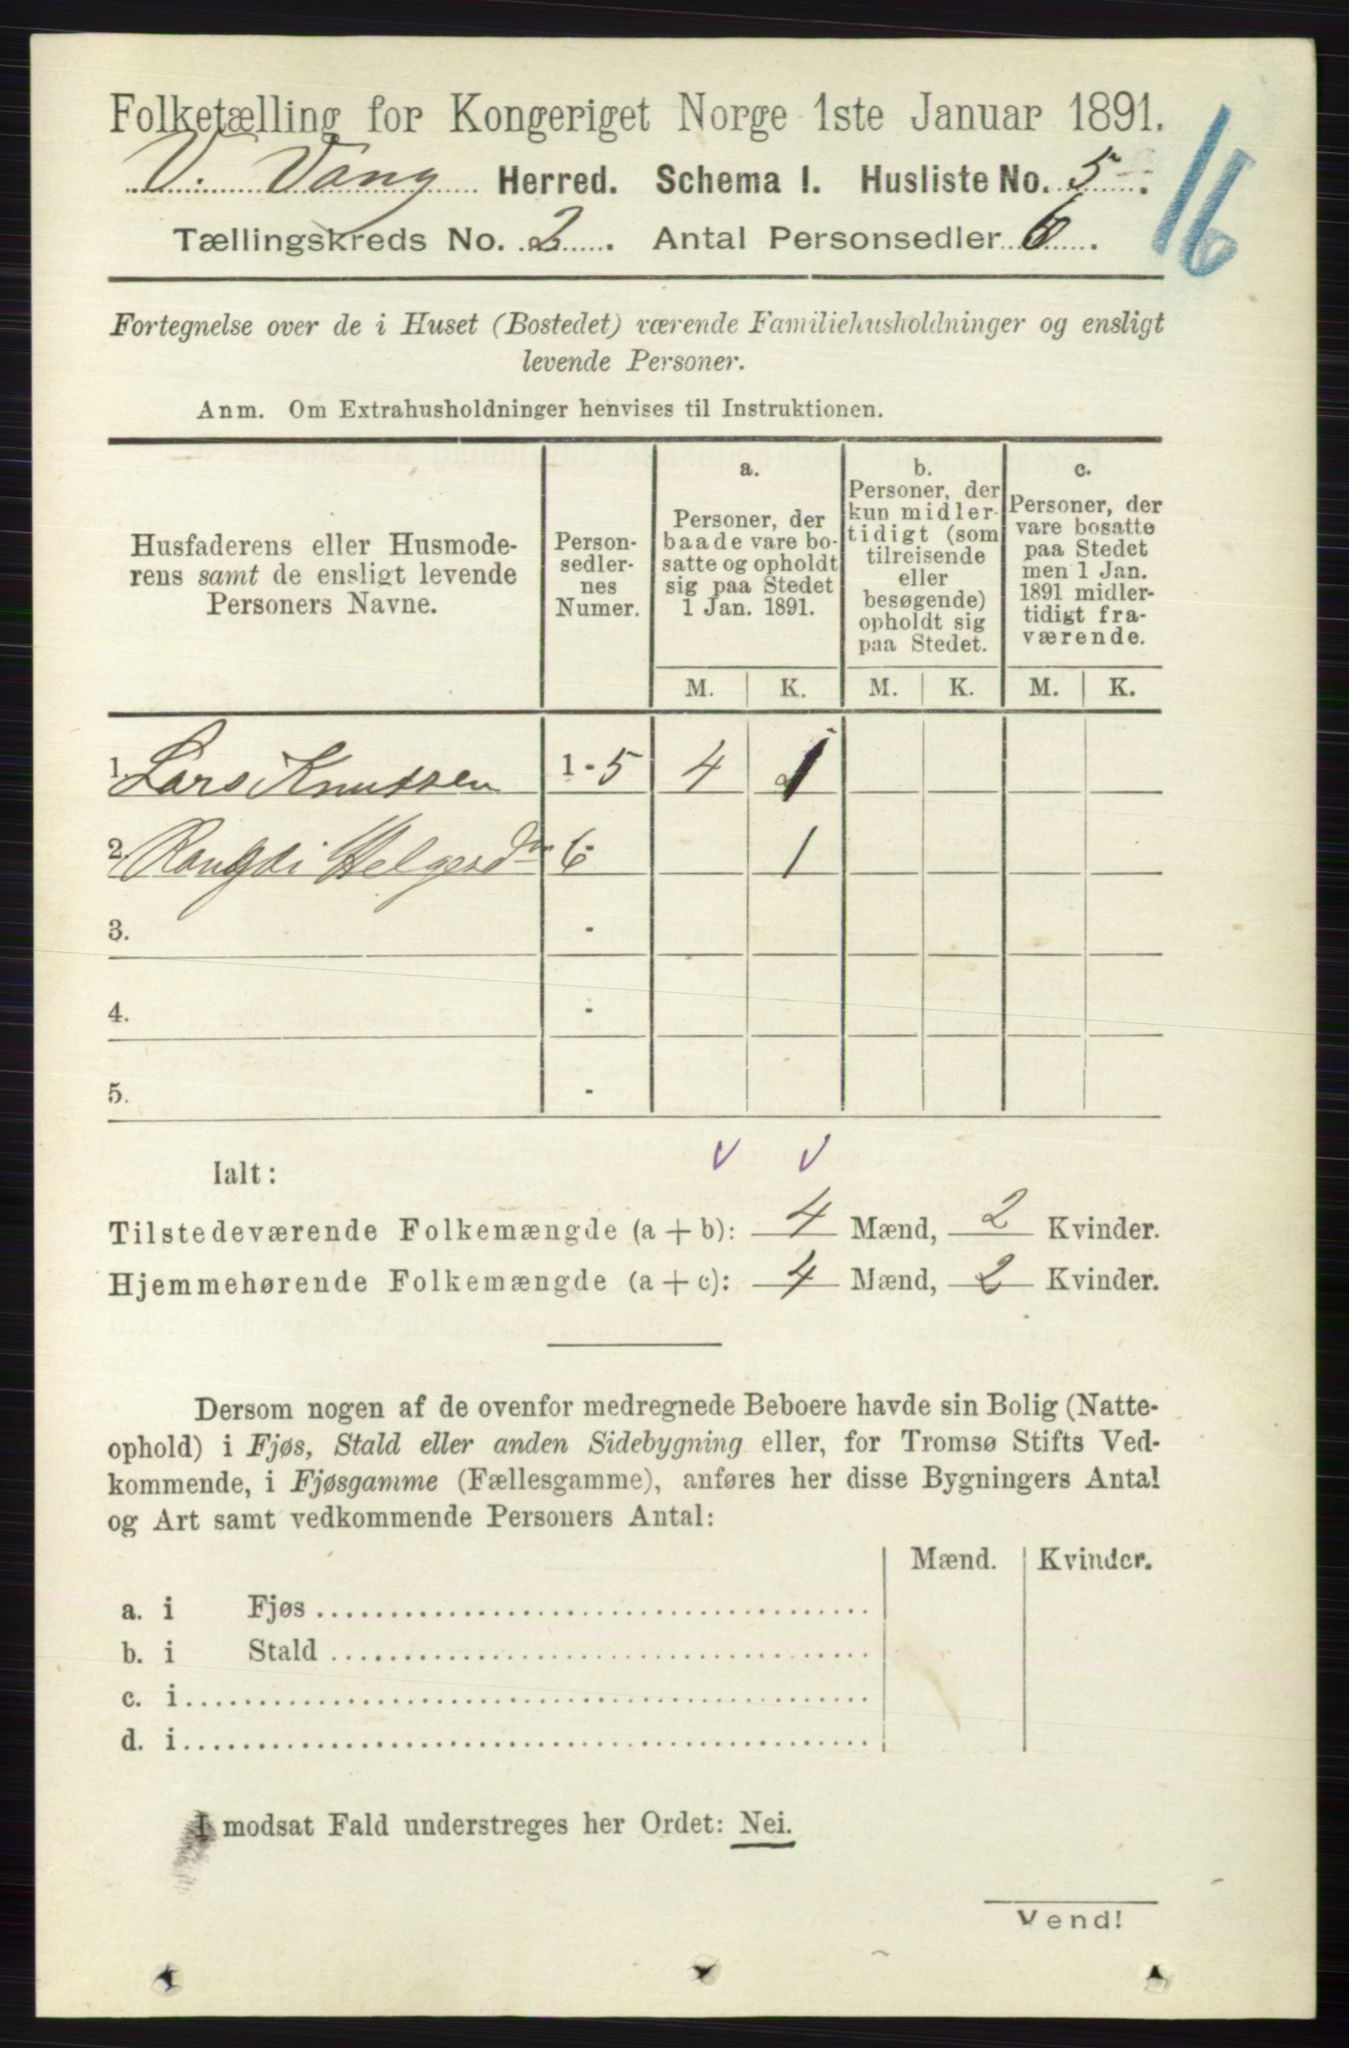 Folketælling for Kongeriget Norge 1ste Januar 1891.
V. Vang Herred. Schema I. Husliste No. 5.
Tællingskreds No. 2. Antal Personsedler 6.
16
Fortegnelse over de i Huset (Bostedet) værende Familiehusholdninger og ensligt
levende Personer.
Anm. Om Extrahusholdninger henvises til Instruktionen.
Husfaderens eller Husmode-
rens samt de ensligt levende
Personers Navne.
Person-
sedler-
nes
Numer.
a.
Personer, der
baade vare bo-
satte og opholdt
sig paa Stedet
1 Jan. 1891.
b.
Personer, der
kun midler-
tidigt (som
tilreisende
eller
besøgende)
opholdt sig
paa Stedet.
c.
Personer, der
vare bosatte
paa Stedet
men 1 Jan.
1891 midler-
tidigt fra-
værende.
M. K. M. K. M. K.
1. Lars Knutsen 1-5 4 1
2. Rangdi Helgesdtr 6 1
3. -
4. -
5. -
Ialt:
Tilstedeværende Folkemængde (a + b): 4 Mænd, 2 Kvinder.
Hjemmehørende Folkemængde (a + c): 4 Mænd, 2 Kvinder.
Dersom nogen af de ovenfor medregnede Beboere havde sin Bolig (Natte-
ophold) i Fjøs, Stald eller anden Sidebygning eller, for Tromsø Stifts Ved-
kommende, i Fjøsgamme (Fællesgamme), anføres her disse Bygningers Antal
og Art samt vedkommende Personers Antal:
Mænd. Kvinder.
a. i Fjøs
b. i Stald
c. i
d. i
I modsat Fald understreges her Ordet: Nei.
Vend!